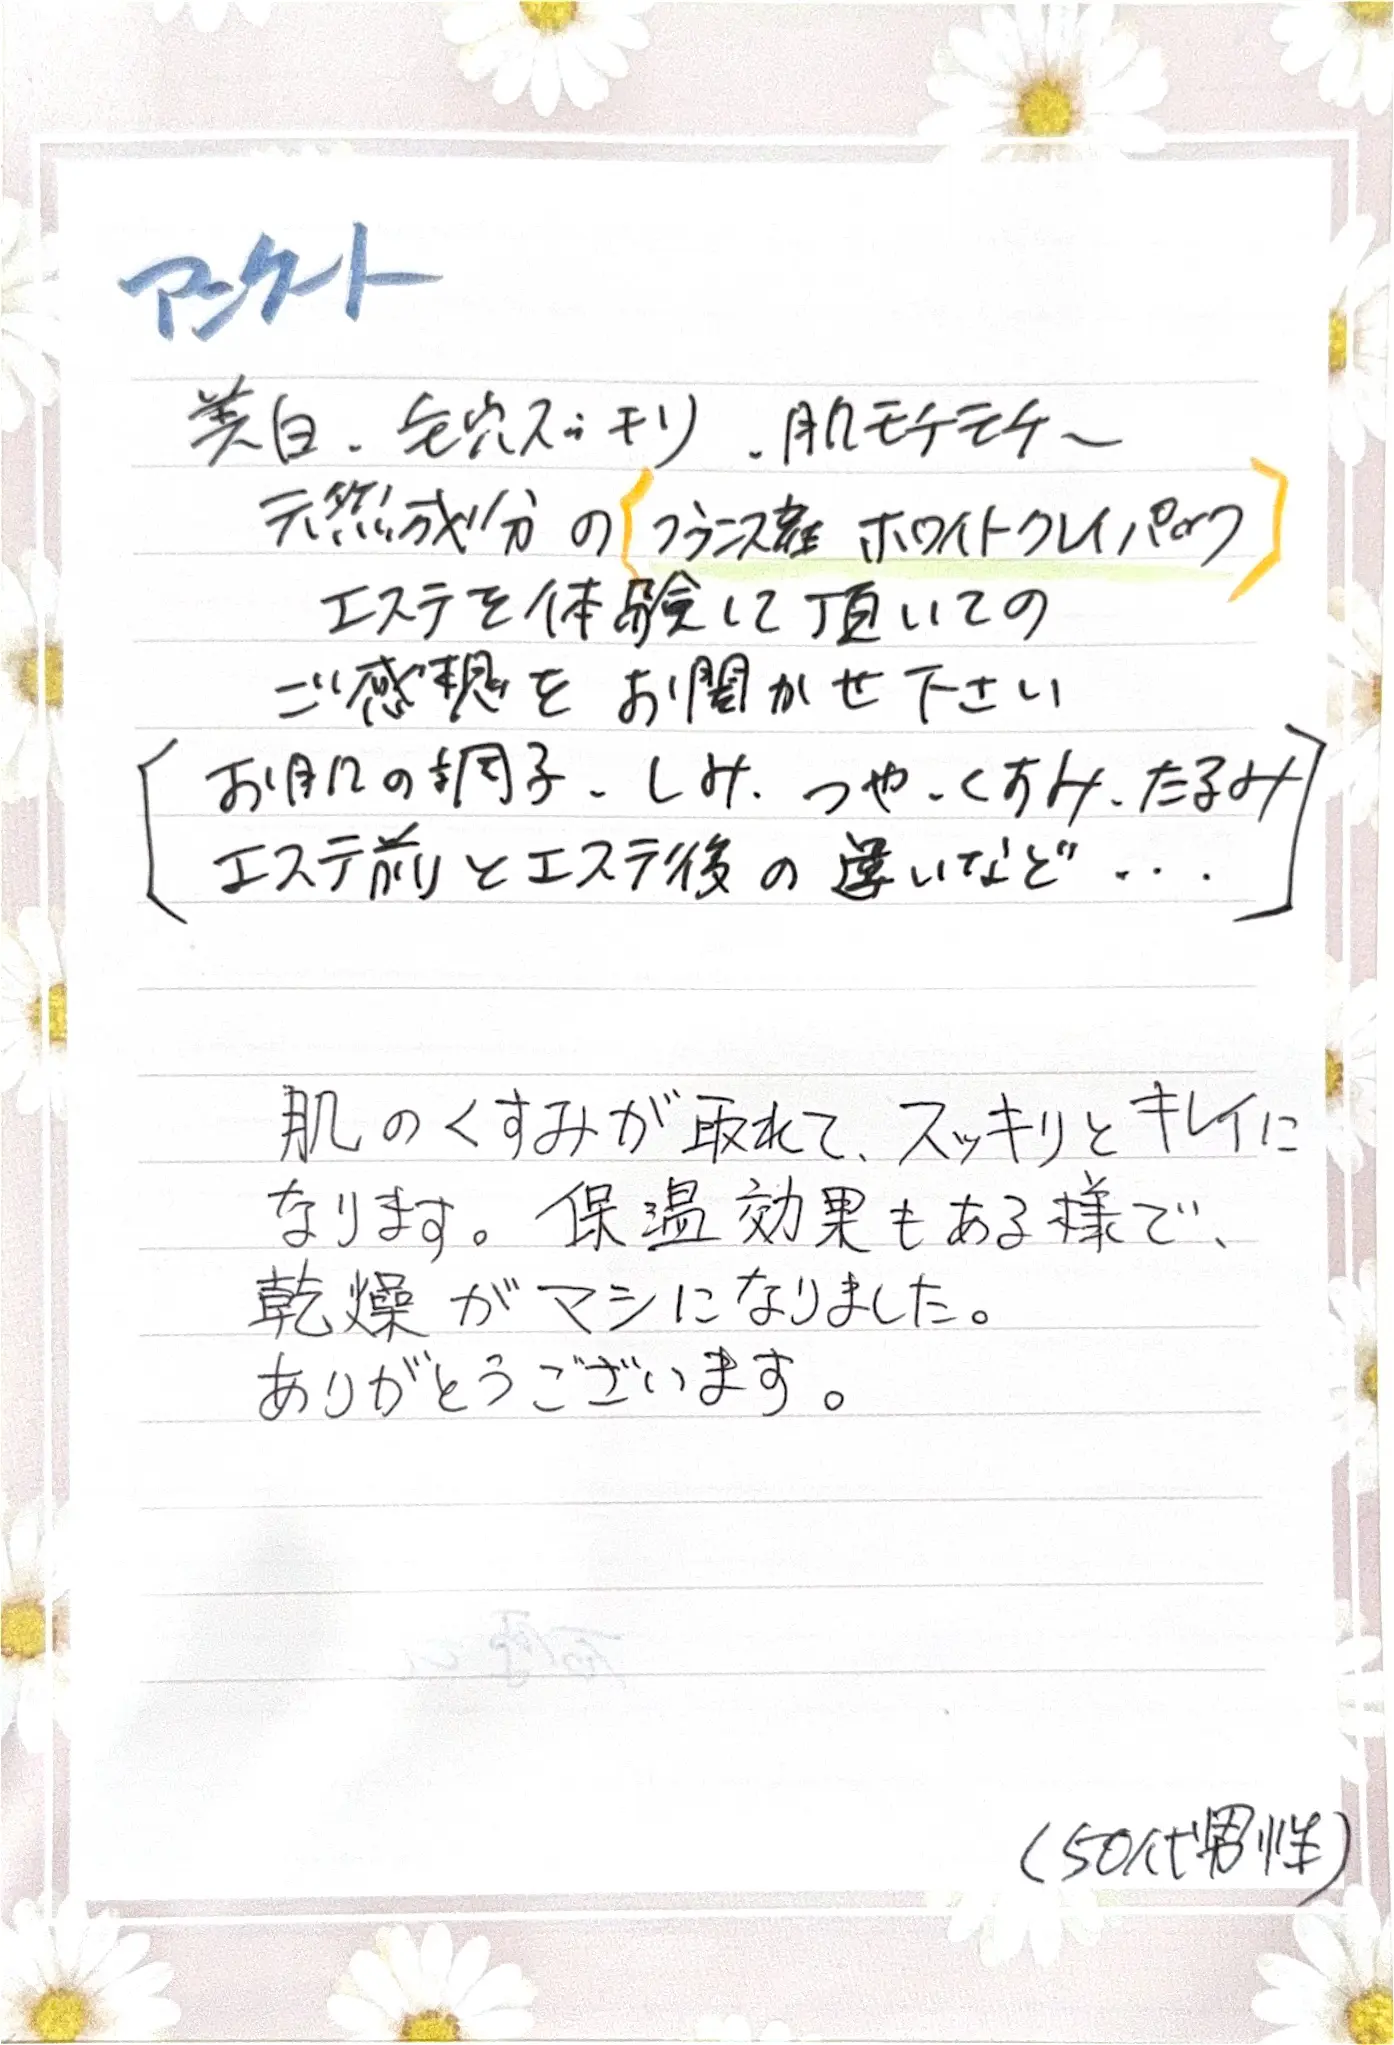 アンケート
美白、毛穴スッキリ、肌モチモチ〜
天然成分の（フランス産 ホワイトクレイパック）
エステを体験して頂いての
ご感想をお聞かせ下さい
［お肌の調子、しみ、つや、くすみ、たるみ
エステ前とエステ後の違いなど・・・］
肌のくすみが取れて、スッキリとキレイに
なります。保温効果もある様で、
乾燥がマシになりました。
ありがとうございます。
（50代男性）